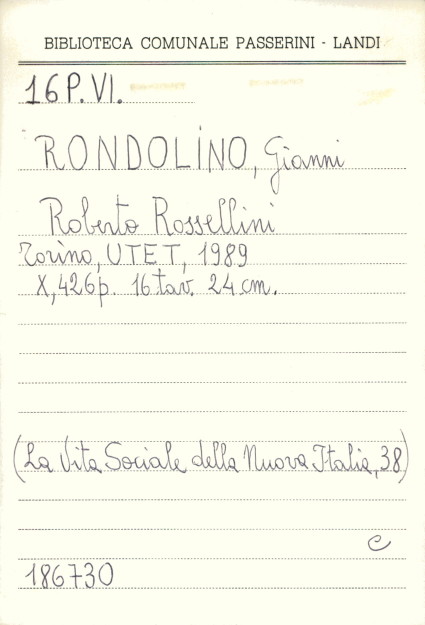 BIBLIOTECA COMUNALE PASSERINI - LANDI
16 P. VI.
RONDOLINO, Gianni
Roberto Rossellini
Torino, UTET, 1989
X, 426 p. 16 tav. 24 cm.
(La Vita Sociale della Nuova Italia, 38)
c
186730